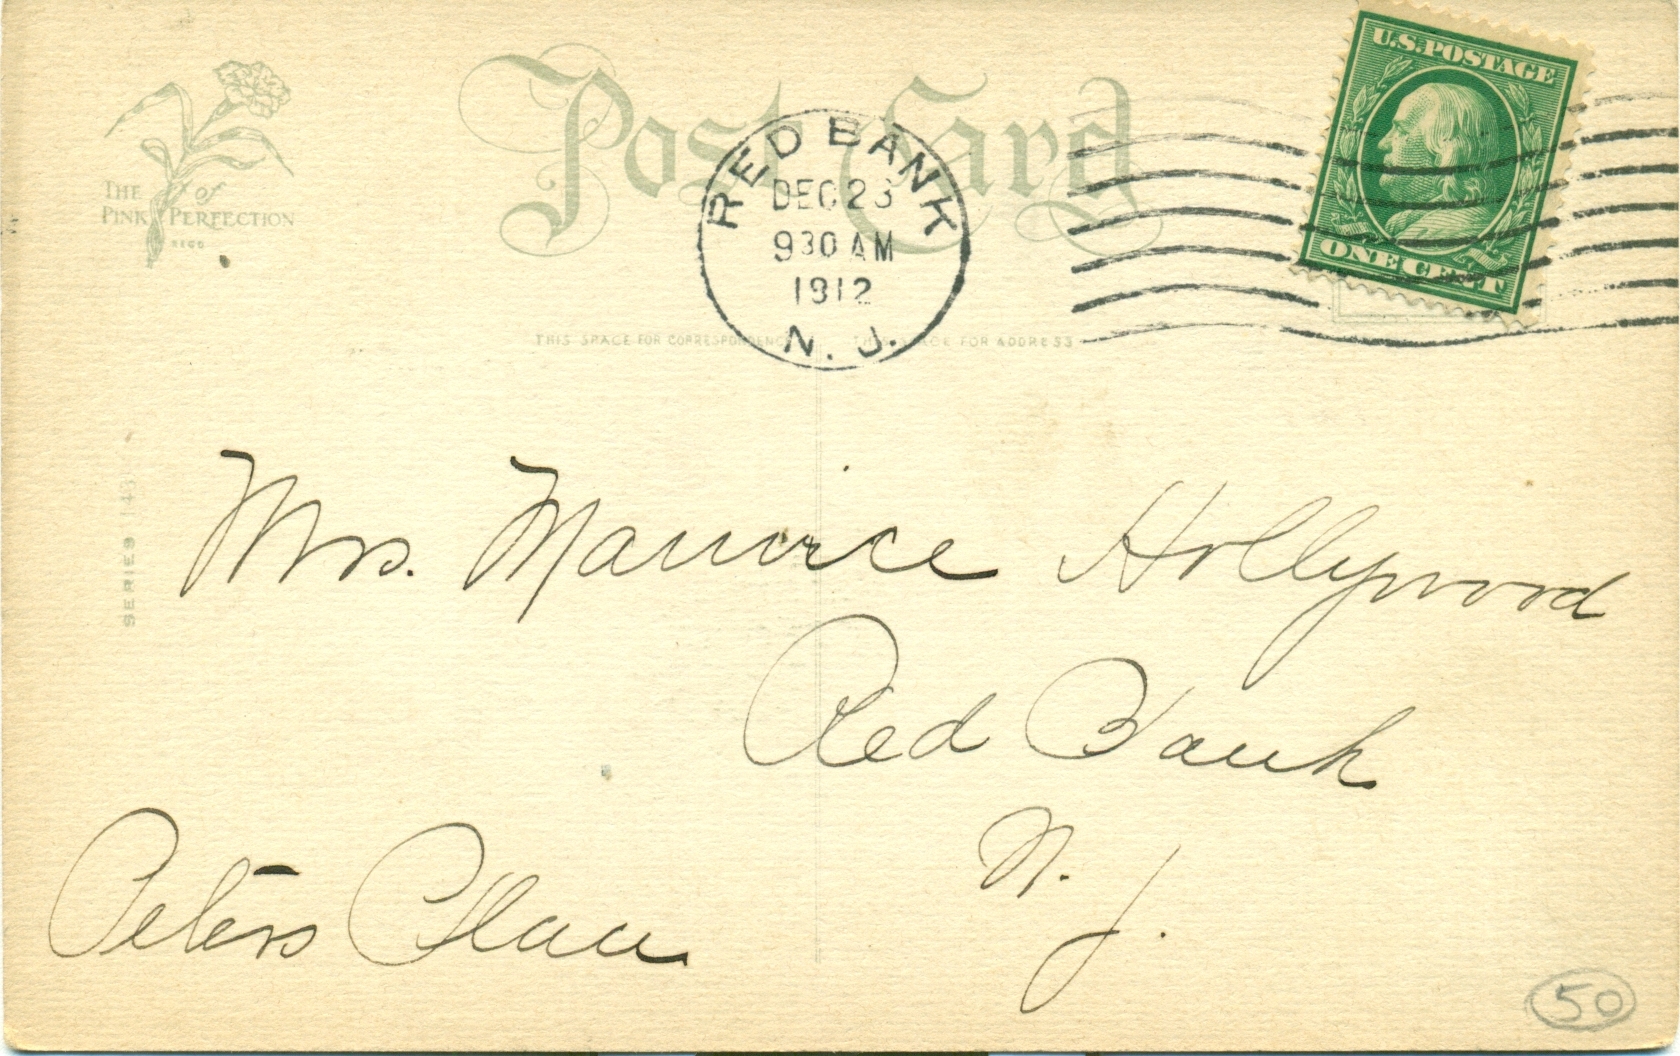 Post Card
U.S. POSTAGE
ONE CENT
THE
PINK of PERFECTION
REGD
RED BANK
DEC 23
930 AM
1912
N. J.
THIS SPACE FOR CORRESPONDENCE
THIS SPACE FOR ADDRESS
SERIES 143
Mrs. Maurice Hollywood
Red Bank
N. J.
Peters Place
50